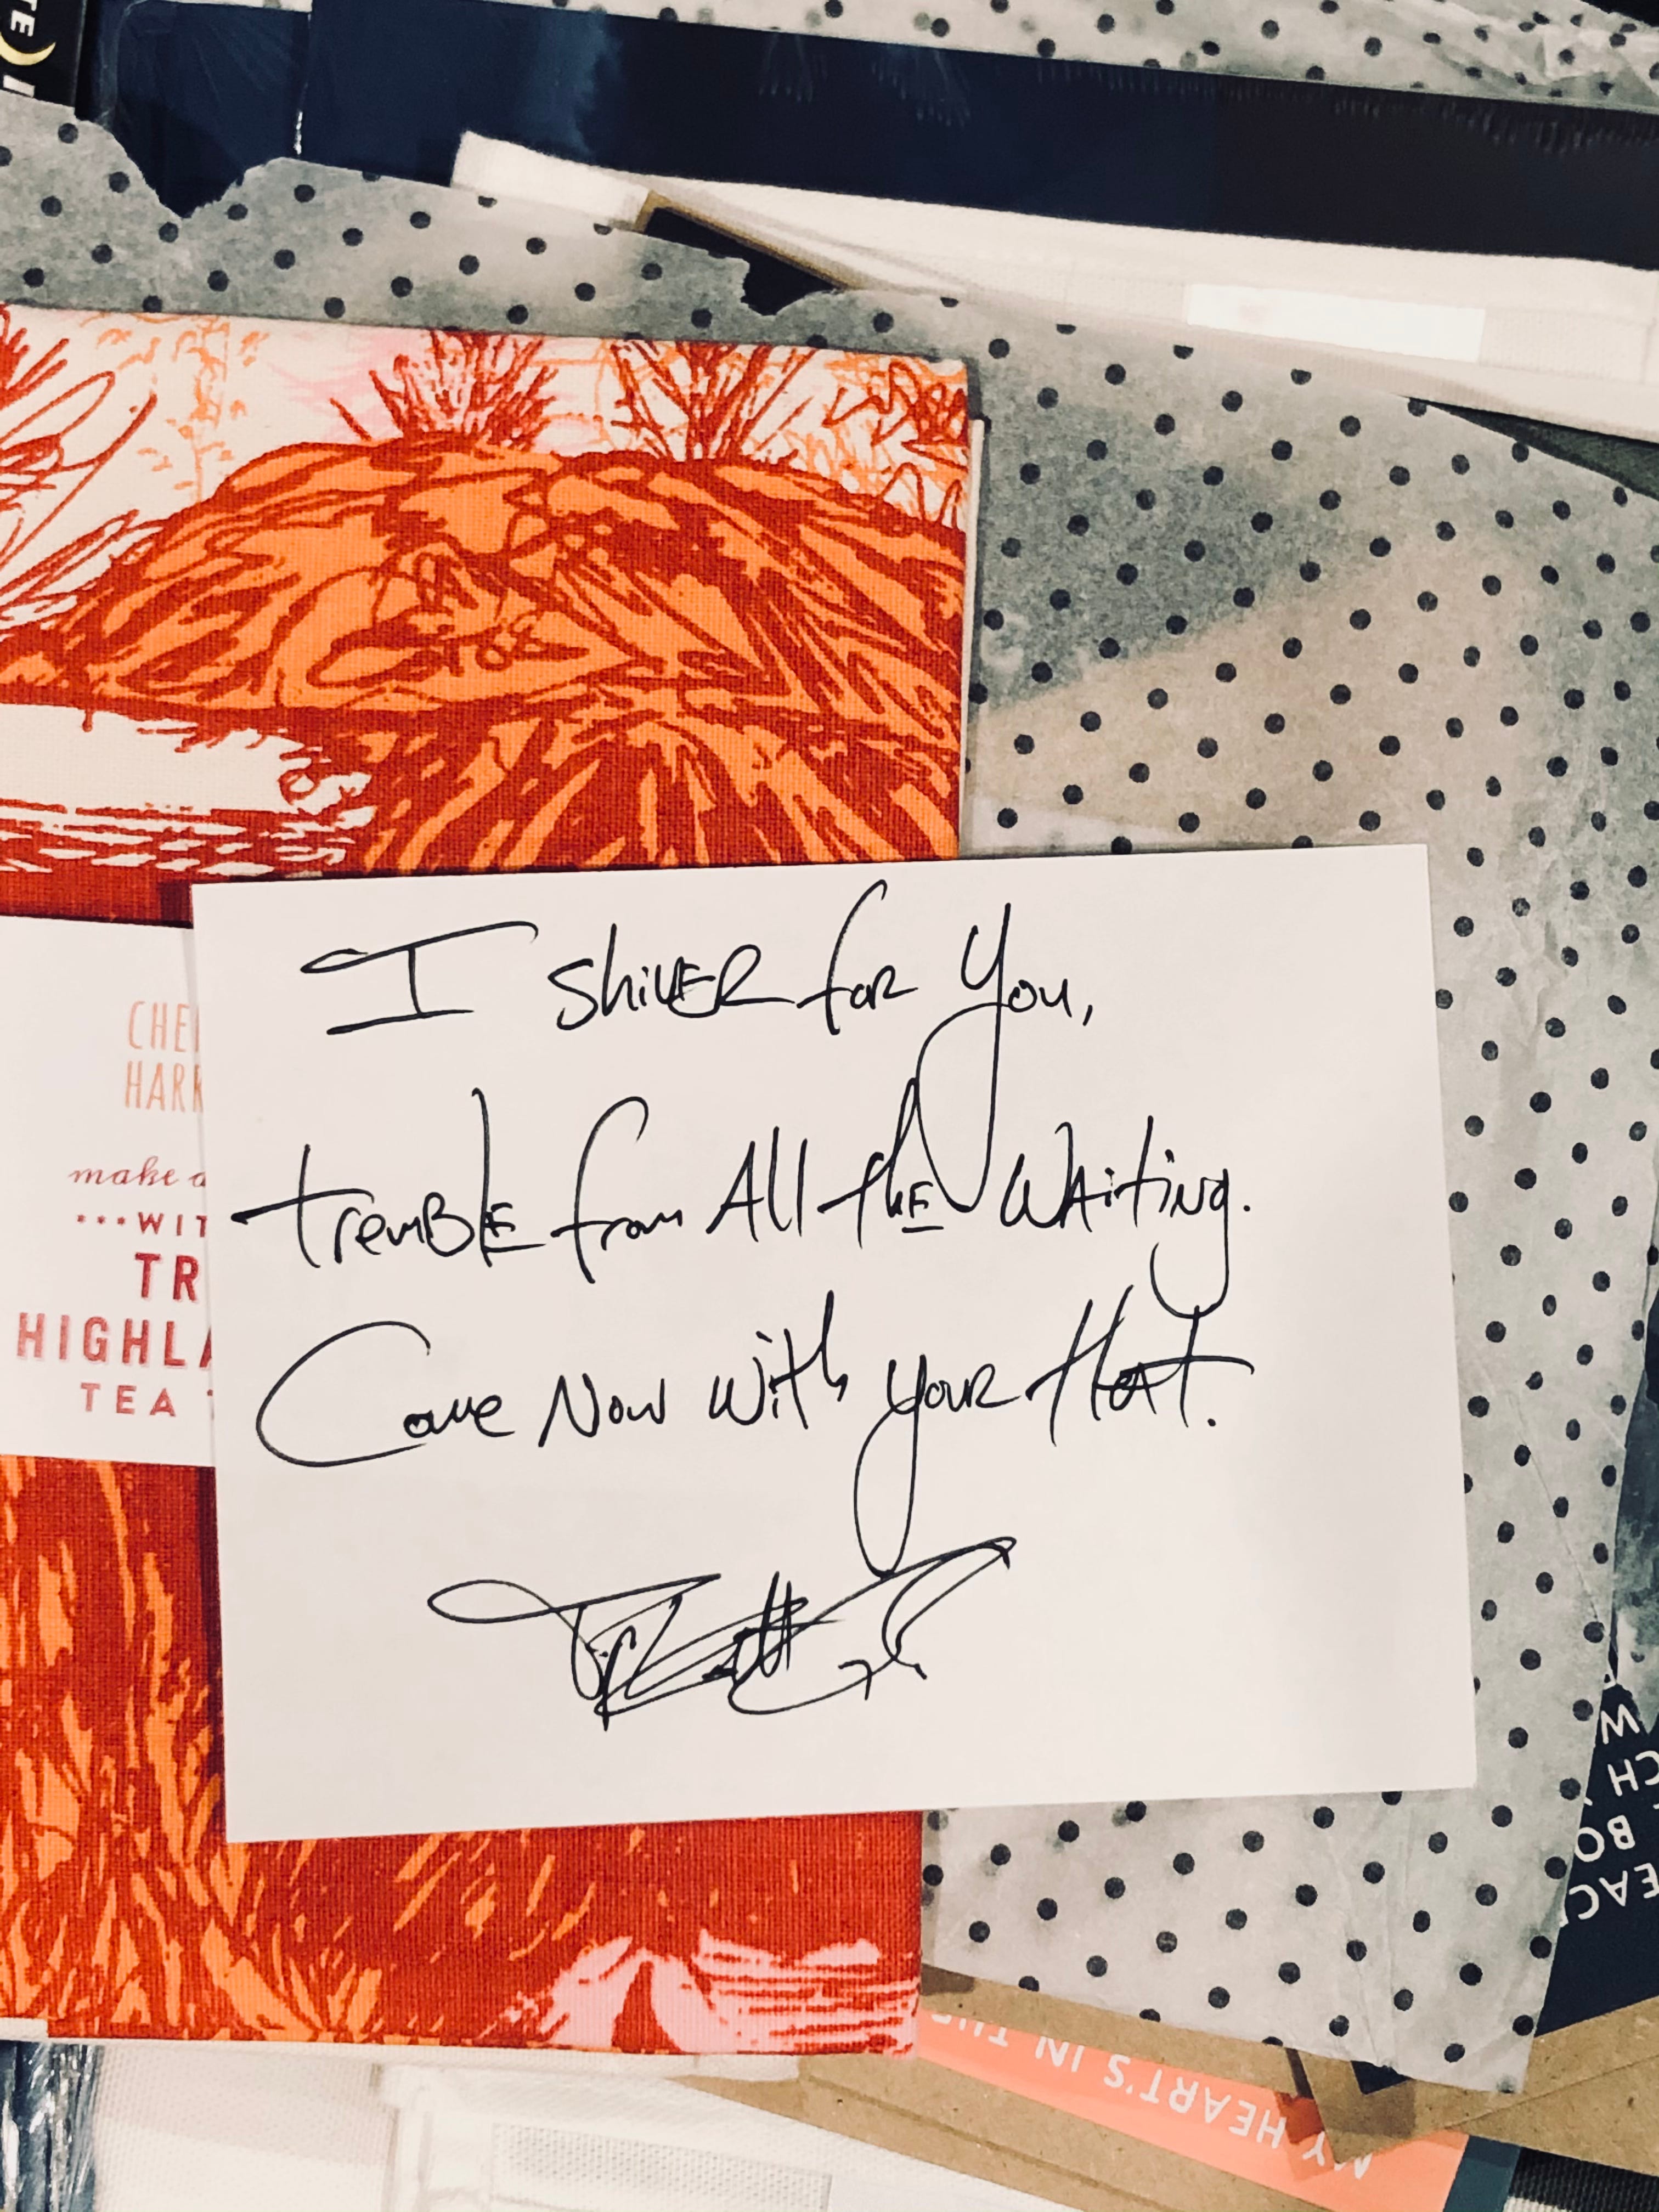 TE
CHE
HARR
make a
...WIT
TR
HIGHLA
TEA
I shiver for you,
tremble from All the Waiting.
Come Now with your
MY HEART'S IN THE
W
CH
BO
EAC